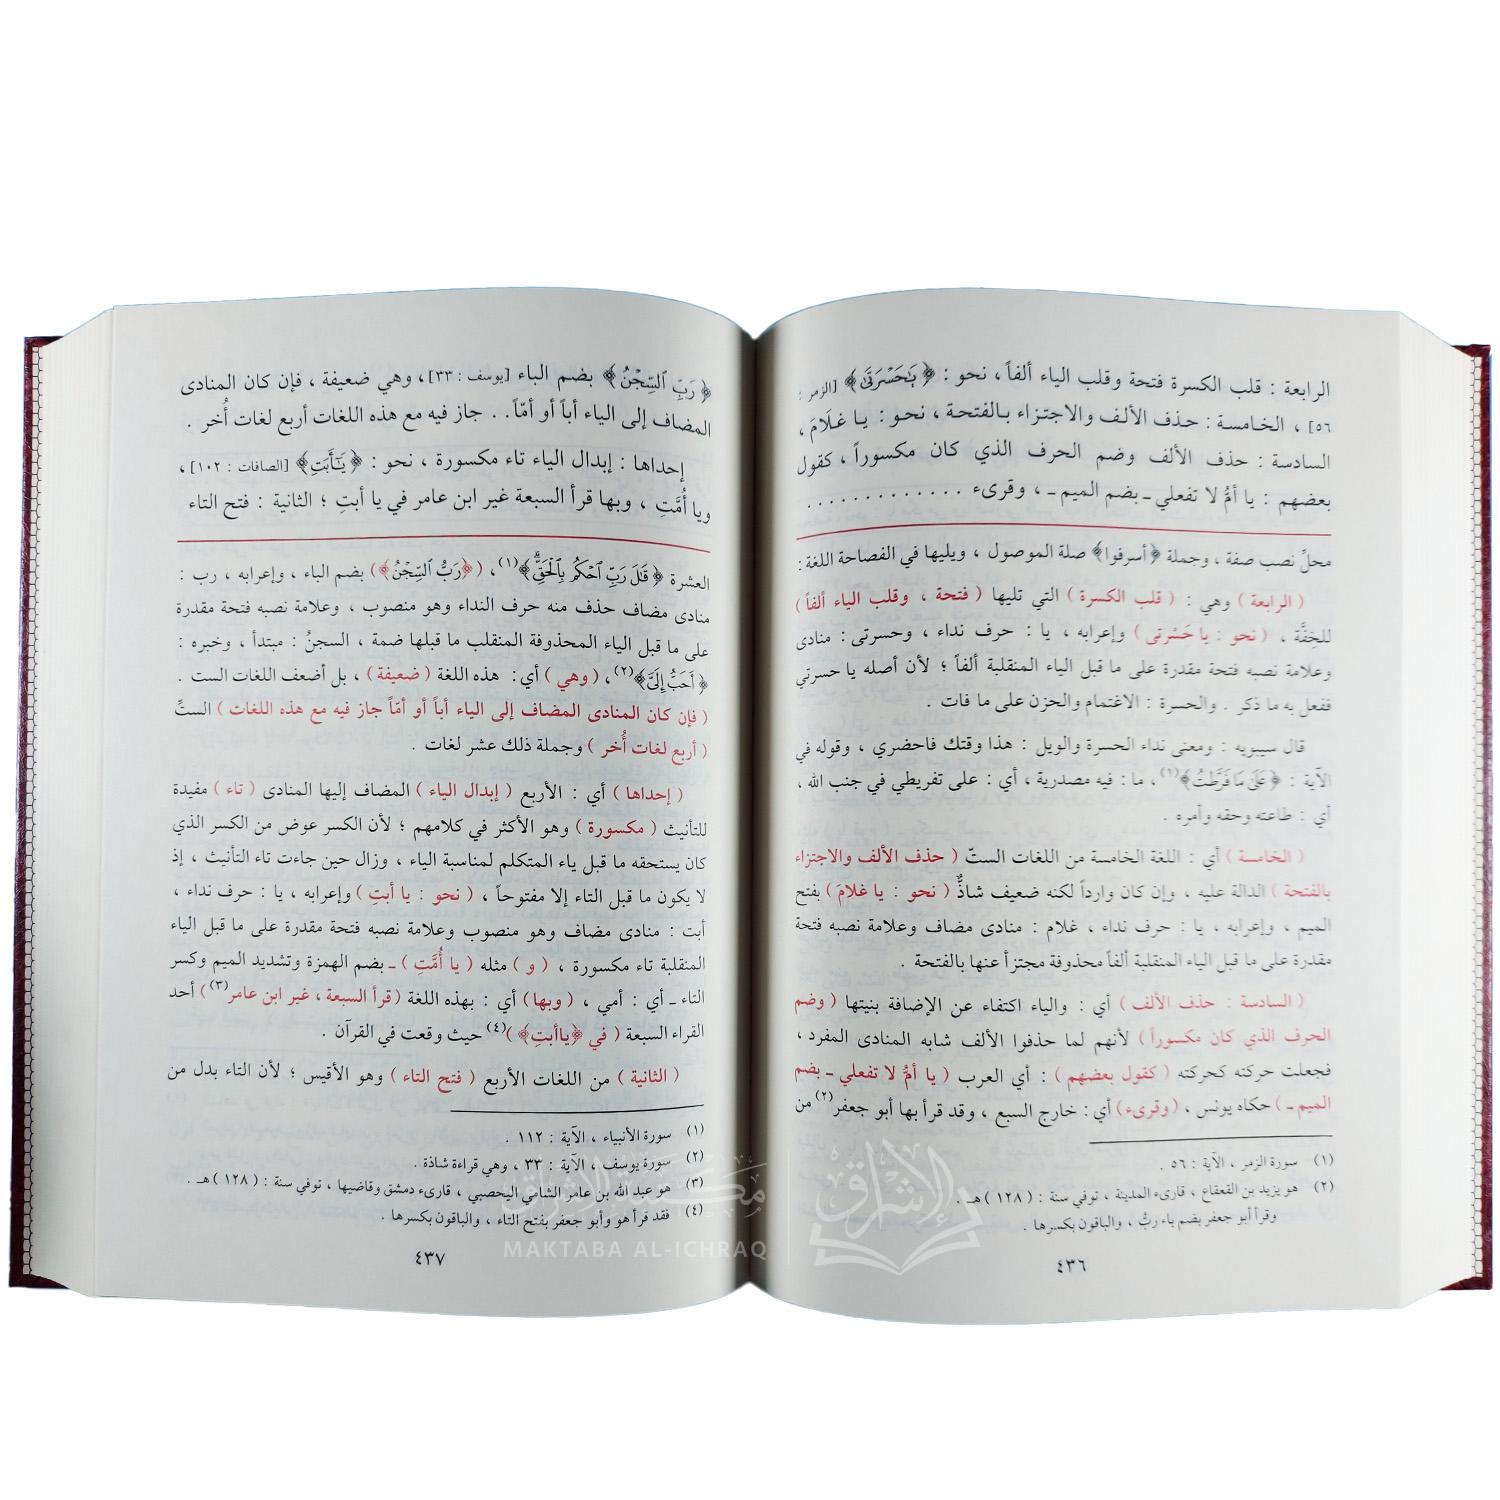 الرابعة : قلب الكسرة فتحة وقلب الياء ألفاً ، نحو : ﴿ يَٰحَسۡرَتَىٰ ﴾ [الزمر :
٥٦] ، الخامسة : حذف الألف والاجتزاء بالفتحة ، نحو : يا غلامَ ،
السادسة : حذف الألف وضم الحرف الذي كان مكسوراً ، كقول
بعضهم : يا أمُّ لا تفعلي ـ بضم الميم ـ ، وقرىء . . . . . . . . . . . . .
محلِّ نصب صفة ، وجملة ﴿أسرفوا﴾ صلة الموصول ، ويليها في الفصاحة اللغة :
( الرابعة ) وهي : ( قلب الكسرة ) التي تليها ( فتحة ، وقلب الياء ألفاً )
للخِفَّة ، ( نحو : يا حَسْرتى ) وإعرابه ، يا : حرف نداء ، وحسرتى : منادى
وعلامة نصبه فتحة مقدرة على ما قبل الياء المنقلبة ألفاً ؛ لأن أصله يا حسرتي
ففعل به ما ذكر . والحسرة : الاغتمام والحزن على ما فات .
قال سيبويه : ومعنى نداء الحسرة والويل : هذا وقتك فاحضري ، وقوله في
الآية : ﴿ عَلَىٰ مَا فَرَّطتُ ﴾(١) ، ما : فيه مصدرية ، أي : على تفريطي في جنب الله ،
أي : طاعته وحقه وأمره .
( الخامسة ) أي : اللغة الخامسة من اللغات الستّ ( حذف الألف والاجتزاء
بالفتحة ) الدالة عليه ، وإن كان وارداً لكنه ضعيف شاذٌّ ( نحو : يا غلامَ ) بفتح
الميم ، وإعرابه ، يا : حرف نداء ، غلام : منادى مضاف وعلامة نصبه فتحة
مقدرة على ما قبل الياء المنقلبة ألفاً محذوفة مجتزأ عنها بالفتحة .
( السادسة : حذف الألف ) أي : والياء اكتفاء عن الإضافة بنيتها ( وضم
الحرف الذي كان مكسوراً ) لأنهم لما حذفوا الألف شابه المنادى المفرد ،
فجعلت حركته كحركته ( كقول بعضهم ) : أي العرب ( يا أمُّ لا تفعلي ـ بضم
الميم ـ ) حكاه يونس ، ( وقرىء ) أي : خارج السبع ، وقد قرأ بها أبو جعفر(٢) من
(١) سورة الزمر ، الآية : ٥٦ .
(٢) هو يزيد بن القعقاع ، قارىء المدينة ، توفي سنة : ( ١٢٨ ) هـ .
وقرأ أبو جعفر بضم باء ربُّ ، والباقون بكسرها .
٤٣٦
﴿ رَبِّ ٱلسِّجْنُ ﴾ بضم الباء [يوسف : ٣٣] ، وهي ضعيفة ، فإن كان المنادى
المضاف إلى الياء أباً أو أمّاً . . جاز فيه مع هذه اللغات أربع لغات أُخر .
إحداها : إبدال الياء تاء مكسورة ، نحو : ﴿ يَٰٓأَبَتِ ﴾ [الصافات : ١٠٢] ،
ويا أُمَّتِ ، وبها قرأ السبعة غير ابن عامر في يا أبتِ ؛ الثانية : فتح التاء
العشرة ﴿ قَٰلَ رَبِّ ٱحْكُم بِٱلْحَقِّ ﴾(١) ، ( ﴿رَبُّ السِّجْنُ﴾ ) بضم الباء ، وإعرابه ، رب :
منادى مضاف حذف منه حرف النداء وهو منصوب ، وعلامة نصبه فتحة مقدرة
على ما قبل الياء المحذوفة المنقلب ما قبلها ضمة ، السجنُ : مبتدأ ، وخبره :
﴿ أَحَبُّ إِلَيَّ ﴾(٢) ، ( وهي ) أي : هذه اللغة ( ضعيفة ) ، بل أضعف اللغات الست .
( فإن كان المنادى المضاف إلى الياء أباً أو أمّاً جاز فيه مع هذه اللغات ) الستِّ
( أربع لغات أُخر ) وجملة ذلك عشر لغات .
( إحداها ) أي : الأربع ( إبدال الياء ) المضاف إليها المنادى ( تاء ) مفيدة
للتأنيث ( مكسورة ) وهو الأكثر في كلامهم ؛ لأن الكسر عوض من الكسر الذي
كان يستحقه ما قبل ياء المتكلم لمناسبة الياء ، وزال حين جاءت تاء التأنيث ، إذ
لا يكون ما قبل التاء إلا مفتوحاً ، ( نحو : يا أبتِ ) وإعرابه ، يا : حرف نداء ،
أبت : منادى مضاف وهو منصوب وعلامة نصبه فتحة مقدرة على ما قبل الياء
المنقلبة تاء مكسورة ، ( و ) مثله ( يا أُمَّتِ ) ـ بضم الهمزة وتشديد الميم وكسر
التاء ـ أي : أمي ، ( وبها ) أي : بهذه اللغة ( قرأ السبعة ، غير ابن عامر(٣) ) أحد
القراء السبعة ( في ﴿ياأبتِ﴾ )(٤) حيث وقعت في القرآن .
( الثانية ) من اللغات الأربع ( فتح التاء ) وهو الأقيس ؛ لأن التاء بدل من
(١) سورة الأنبياء ، الآية : ١١٢ .
(٢) سورة يوسف ، الآية : ٣٣ ، وهي قراءة شاذة .
(٣) هو عبد الله بن عامر الشامي اليحصبي ، قارىء دمشق وقاضيها ، توفي سنة : ( ١٢٨ ) هـ .
(٤) فقد قرأ هو وأبو جعفر بفتح التاء ، والباقون بكسرها .
٤٣٧
مكتبة الإشراق
MAKTABA AL-ICHRAQ
الإشراق